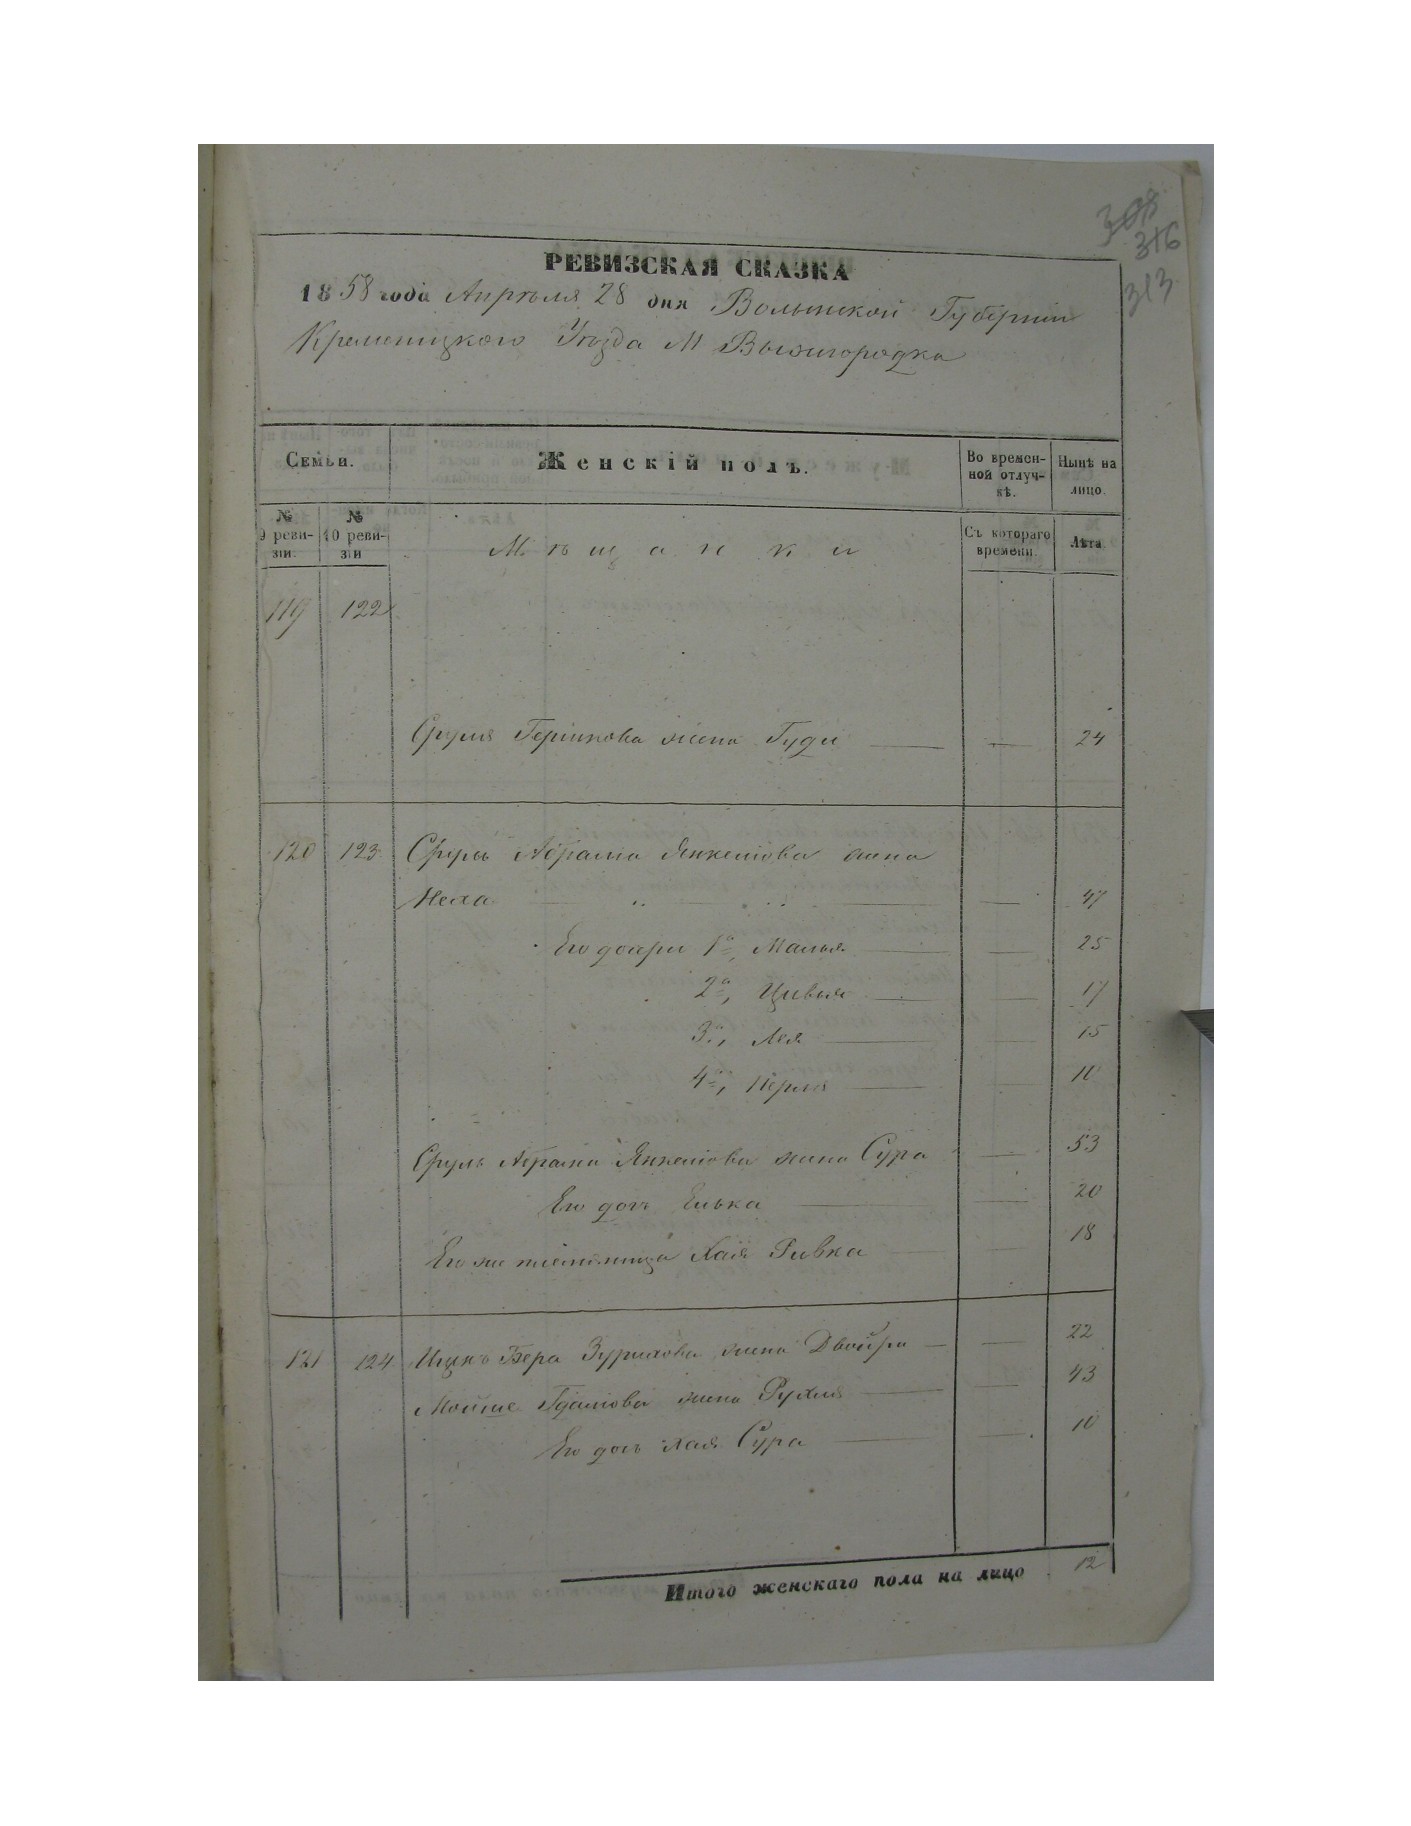 308
316
313
РЕВИЗСКАЯ СКАЗКА
1858 года Апрѣля 28 дня Волынской Губерніи
Кременецкого Уѣзда М Вышгородка
Семьи. Женскій полъ. Во времен-ной отлуч-кѣ. Нынѣ на лицо.
№ 9 реви-зіи. № 10 реви-зіи Мѣщанки Съ котораго времени. Лѣта
119 122
Сруля Гершкова жена Гуди — — 24
120 123 Сруль Абрама Янкелiова жена
Неха — — 47
Его дочери 1я, Малья — — 25
2я, Цивья — — 17
3я, Лея — — 15
4я, Перля — — 10
Сруль Абрама Янкелiова жена Сура — 53
Его дочь Елька — — 20
Его же племянница Хая Ривка — — 18
121 124 Ицко Бера жена Двойра — — 22
Мойше жена Рухля — — 43
Его дочь Хая Сура — — 10
Итого женскаго пола на лицо 12